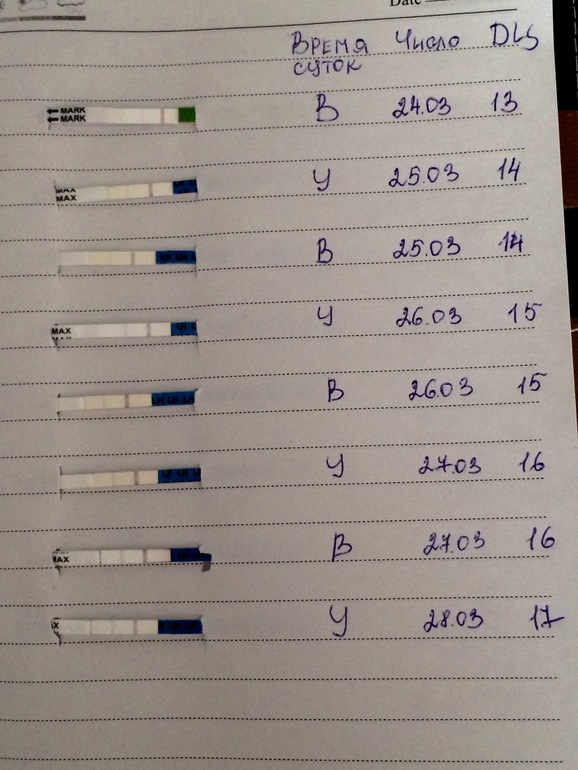 Date
Время Число DLS
суток
← MARK
← MARK
В 24.03 13
У 25.03 14
MAX
MAX
В 25.03 14
MAX
У 26.03 15
В 26.03 15
У 27.03 16
В 27.03 16
У 28.03 17